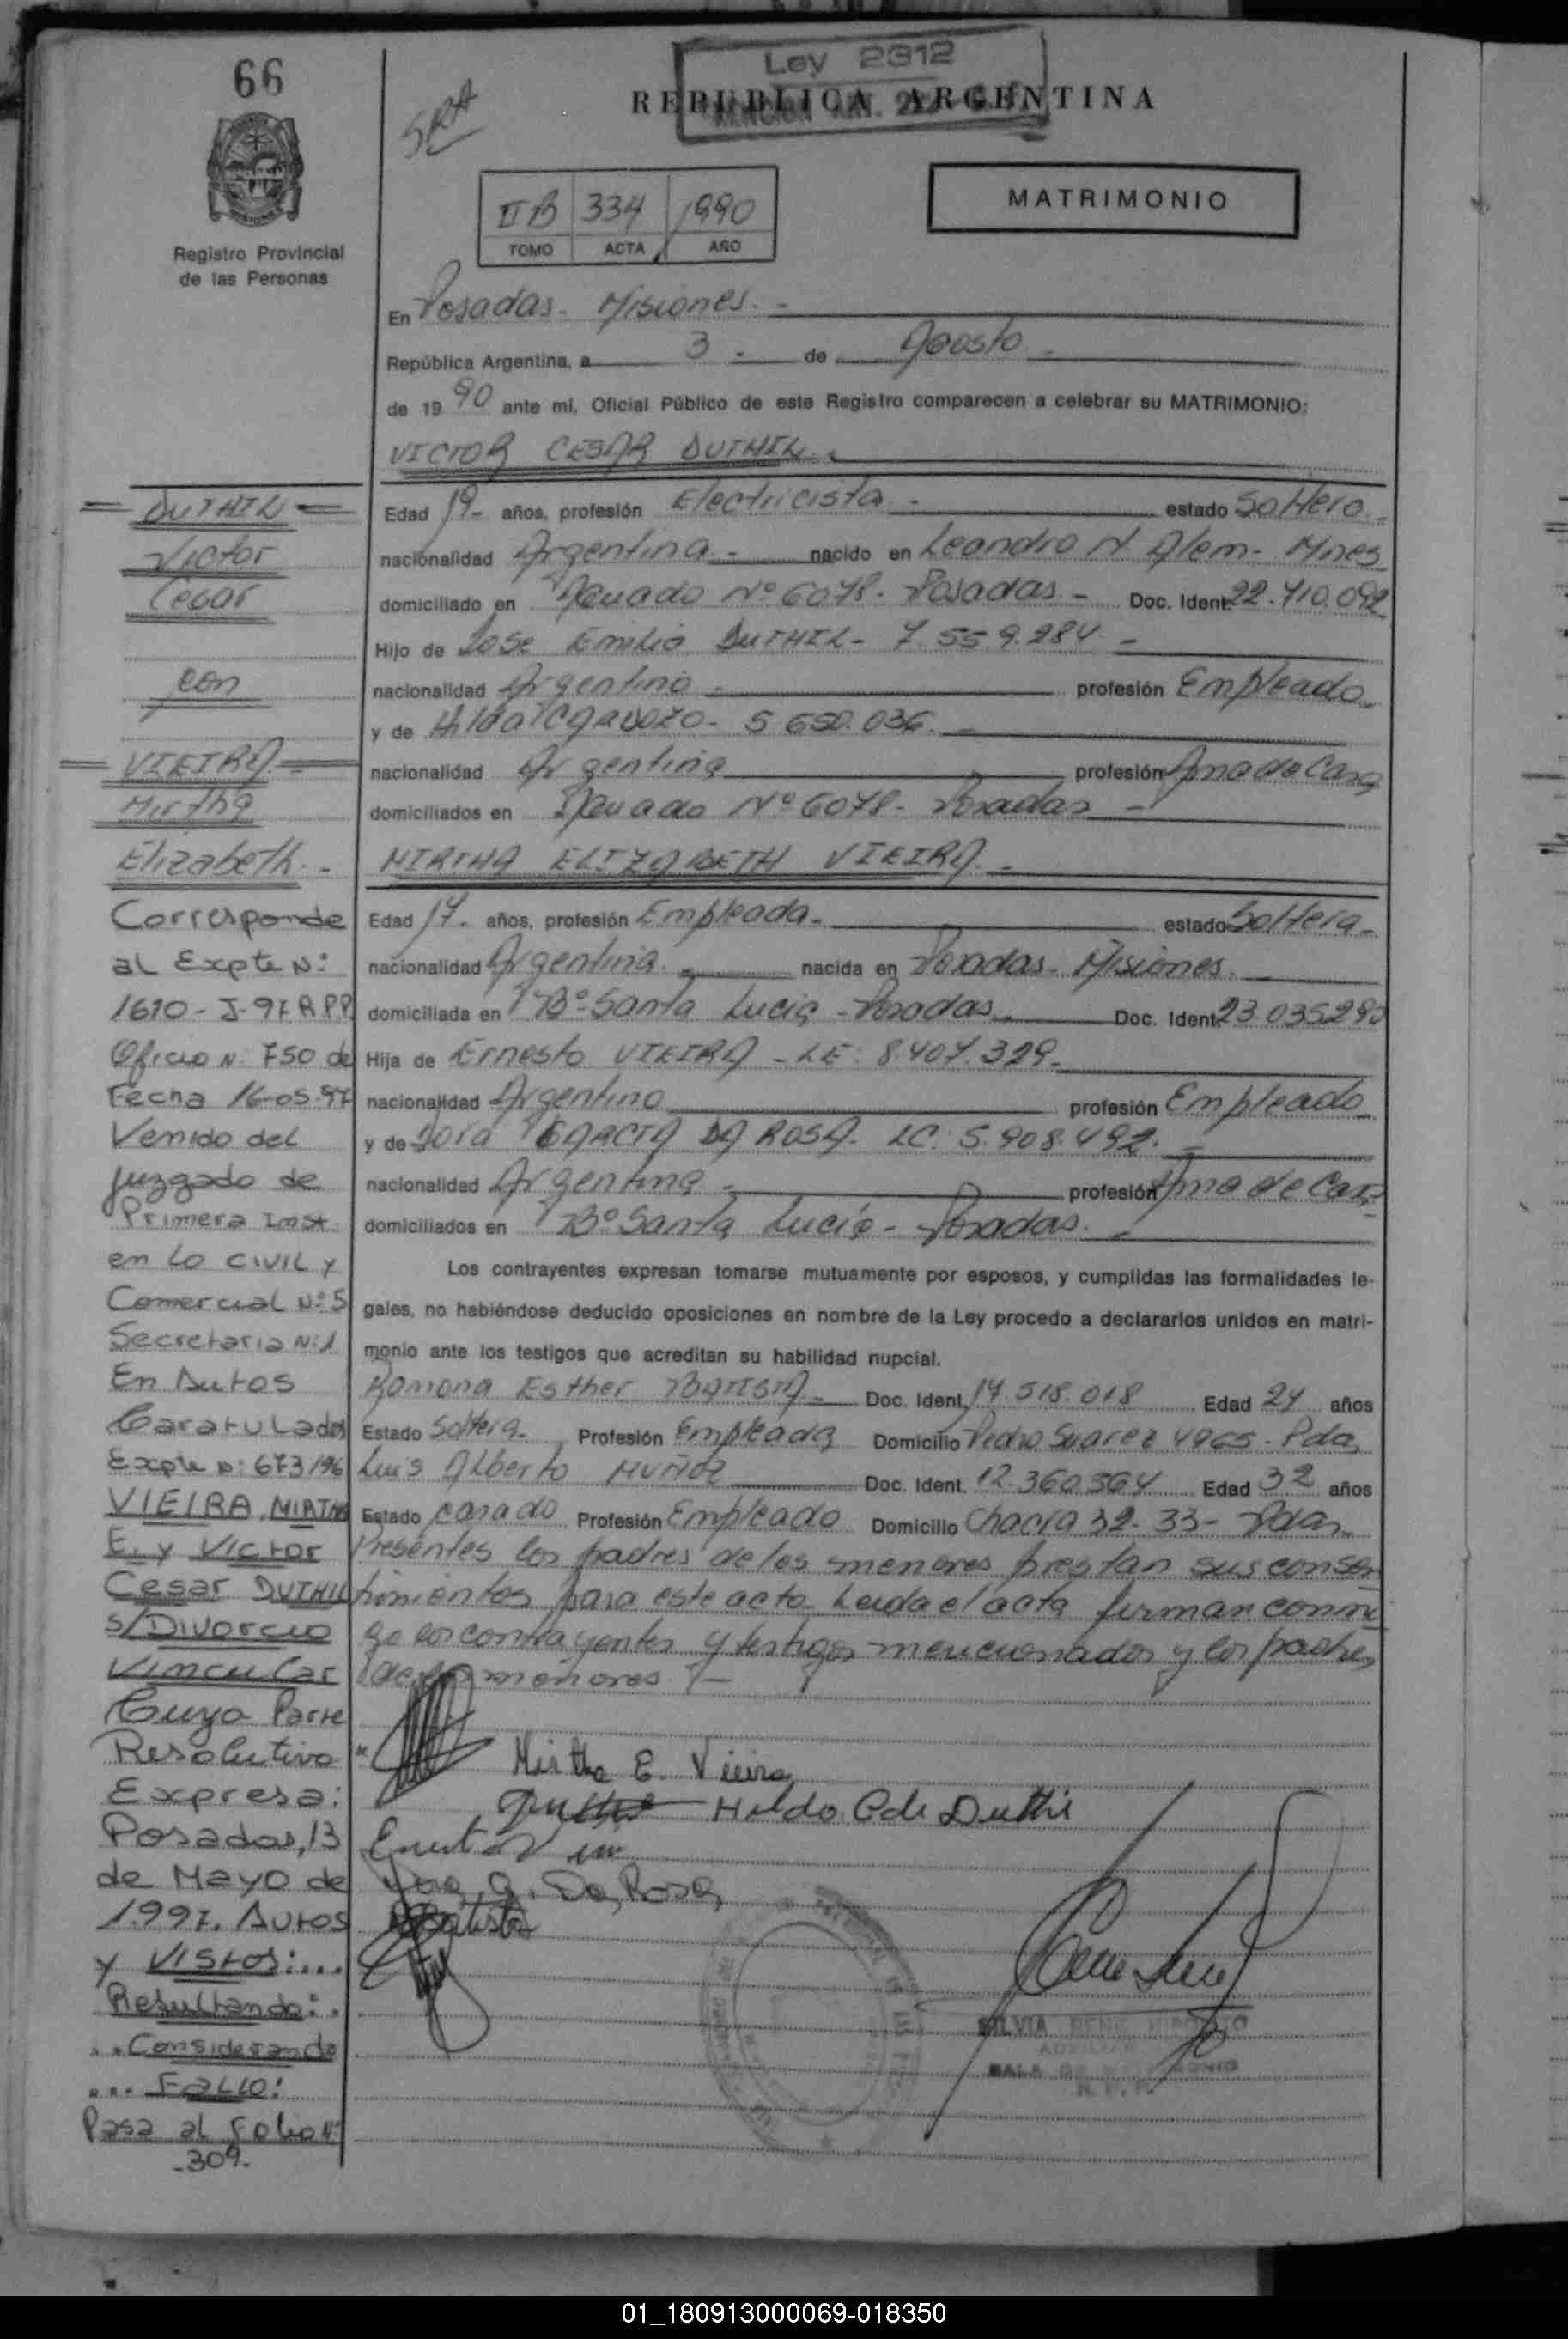 66
Registro Provincial
de las Personas
SRA
Ley 2312
REPUBLICA ARGENTINA
MATRIMONIO
II B 334 1990
TOMO ACTA AÑO
En Posadas - Misiones. -
República Argentina, a 3 - de Agosto -
de 1990 ante mí, Oficial Público de este Registro comparecen a celebrar su MATRIMONIO:
VICTOR CESAR DUTHIL.
Edad 19- años, profesión Electricista - estado Soltero -
nacionalidad Argentina - nacido en Leandro N Alem - Mnes
domiciliado en Nº 6078 - Posadas - Doc. Ident. 22.710.092
Hijo de Jose Emilio DUTHIL - 7.559.284 -
nacionalidad Argentino - profesión Empleado -
y de Hilda 5 650.036. -
nacionalidad Argentina profesión Ama de Casa
domiciliados en Nº 6078 - Posadas -
MIRTHA ELIZABETH VIEIRA -
Edad 17. años, profesión Empleada - estado Soltera -
nacionalidad Argentina - nacida en Posadas - Misiones.
domiciliada en Bº Santa Lucia - Posadas - Doc. Ident. 23.035.290
Hija de Ernesto VIEIRA - LE: 8.407.329 -
nacionalidad Argentino profesión Empleado
y de Dora GARCIA DA ROSA - LC: 5.908.492. -
nacionalidad Argentina - profesión Ama de Casa
domiciliados en Bº Santa Lucia - Posadas. -
Los contrayentes expresan tomarse mutuamente por esposos, y cumplidas las formalidades le-
gales, no habiéndose deducido oposiciones en nombre de la Ley procedo a declararlos unidos en matri-
monio ante los testigos que acreditan su habilidad nupcial.
Ramona Esther BATISTA - Doc. Ident. 17.518.018 Edad 24 años
Estado Soltera - Profesión Empleada Domicilio Pedro Suarez 4965 - Pdas
Luis Alberto MUÑOZ Doc. Ident. 12.360.564 Edad 32 años
Estado casado Profesión Empleado Domicilio Chacra 32-33 - Pdas -
Presentes los padres de los menores prestan sus consen
timientos para este acto Leida el acta firman conmi
go los contrayentes y testigos mencionados y los padres
de los menores -
Mirtha E. Vieira
Hilda C de Duthil
Dora G. Da Rosa
Batista
SILVIA RENE
AUXILIAR
SALA DE MATRIMONIO
R. P. P.
DUTHIL
Victor
Cesar
con
VIEIRA
Mirtha
Elizabeth -
Corresponde
al Expte N:
1610 - J-97 R.P.P
Oficio N: 750 de
Fecha 16-05-97
Venido del
Juzgado de
Primera Inst
en Lo Civil y
Comercial Nº 5
Secretaria N: 1
En Autos
Caratulados
Expte N: 673/96
VIEIRA, MIRTHA
E. y Victor
Cesar DUTHIL
s/Divorcio
Vincular
Cuya Parte
Resolutiva
Expresa:
Posadas, 13
de Mayo de
1.997. Autos
y Vistos:...
Resultando:..
..Considerando
... FALLO:
Pasa al Folio Nº
-309-
01_180913000069-018350